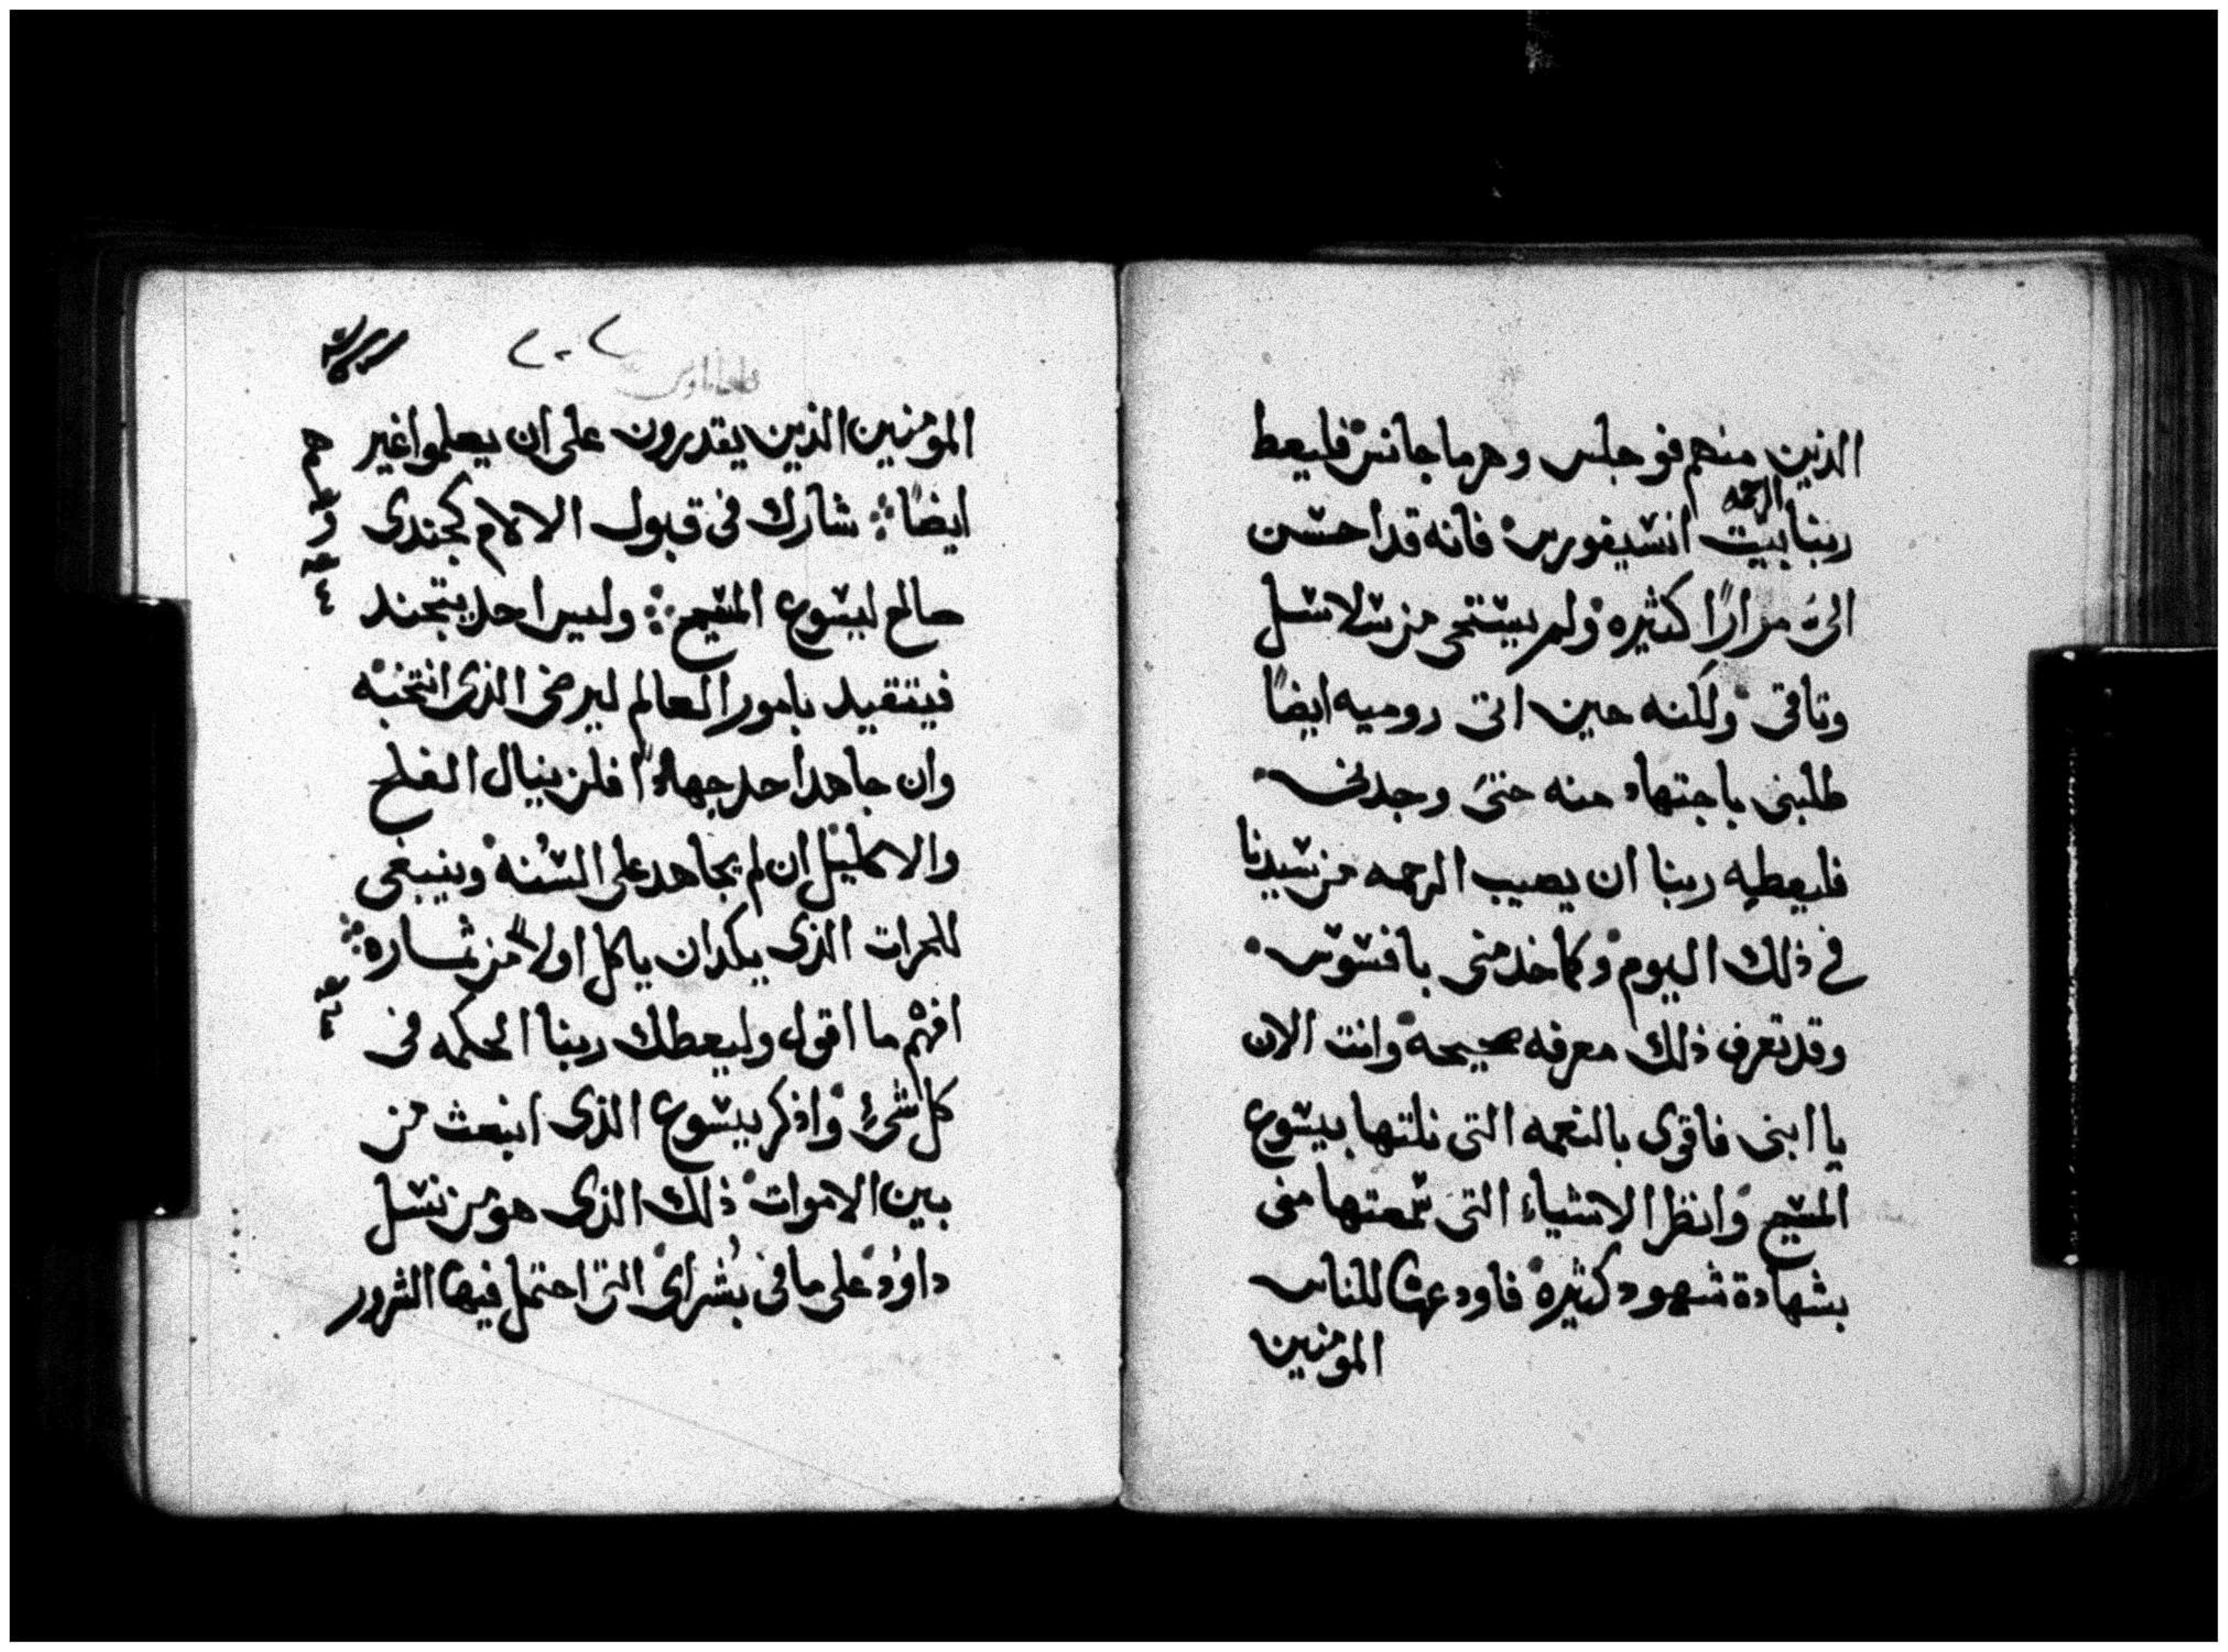 الذين منهم فوجلس وهرماجانس فليعط
الرحمه
ربنا بيت انسيفورس فانه قد احسن
الىَ مرارًا كثيره ولم يستحى من سلاسل
وتاقى ولكنه حين اتى روميه ايضًا
طلبنى باجتهاد منه حتىَ وجدنى
فليعطيه ربنا ان يصيب الرحمه من سيدنا
فى ذلك اليوم وكما خدمنى بافسوس
وقد تعرف ذلك معرفه صحيحه وانت الان
يا ابنى فاقوى بالنعمه التى نلتها بيسوع
المسيح وانظر الاشياء التىَ سمعتها منى
بشهادة شهود كثيره فاودعها للناس
المومنين
٢٠٢
المومنين الذين يقدرون على ان يعلموا غير
هم
ايضًا شارك فى قبول الالام كجندى
صالح ليسوع المسيح وليس احد يتجند
فيتقيد بامور العالم ليرضى الذى انتخبه
وان جاهد احد جهادًا فلن ينال الفلح
والاكليل ان لم يجاهد على السُنه وينبغى
للحراث الذى يكد ان ياكل اولاً من ثماره
افهم ما اقول وليعطك ربنا الحكمه فى
كل شىء واذكر يسوع الذى انبعث من
بين الاموات ذلك الذى هو من نسل
داوُد على ما فى بُشراى التى احتمل فيها الشرور